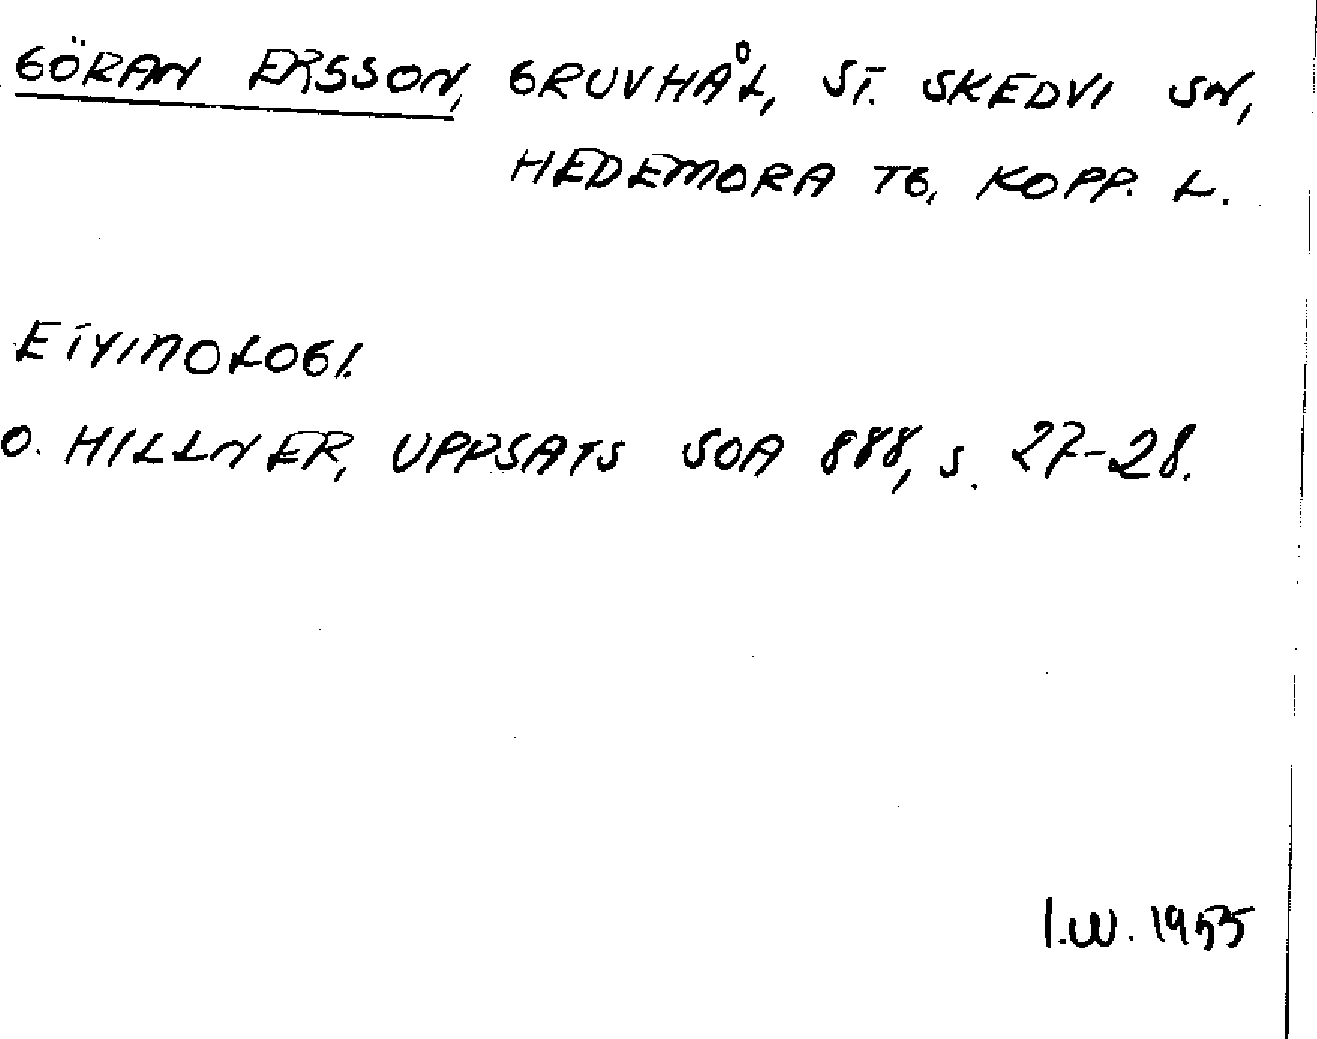 GÖRAN ERSSON, GRUVHÅL, ST. SKEDVI SN,
HEDEMORA TG, KOPP. L.
ETYMOLOGI.
O. HILLNER, UPPSATS SOA 888, S. 27-28.
I.W. 1955